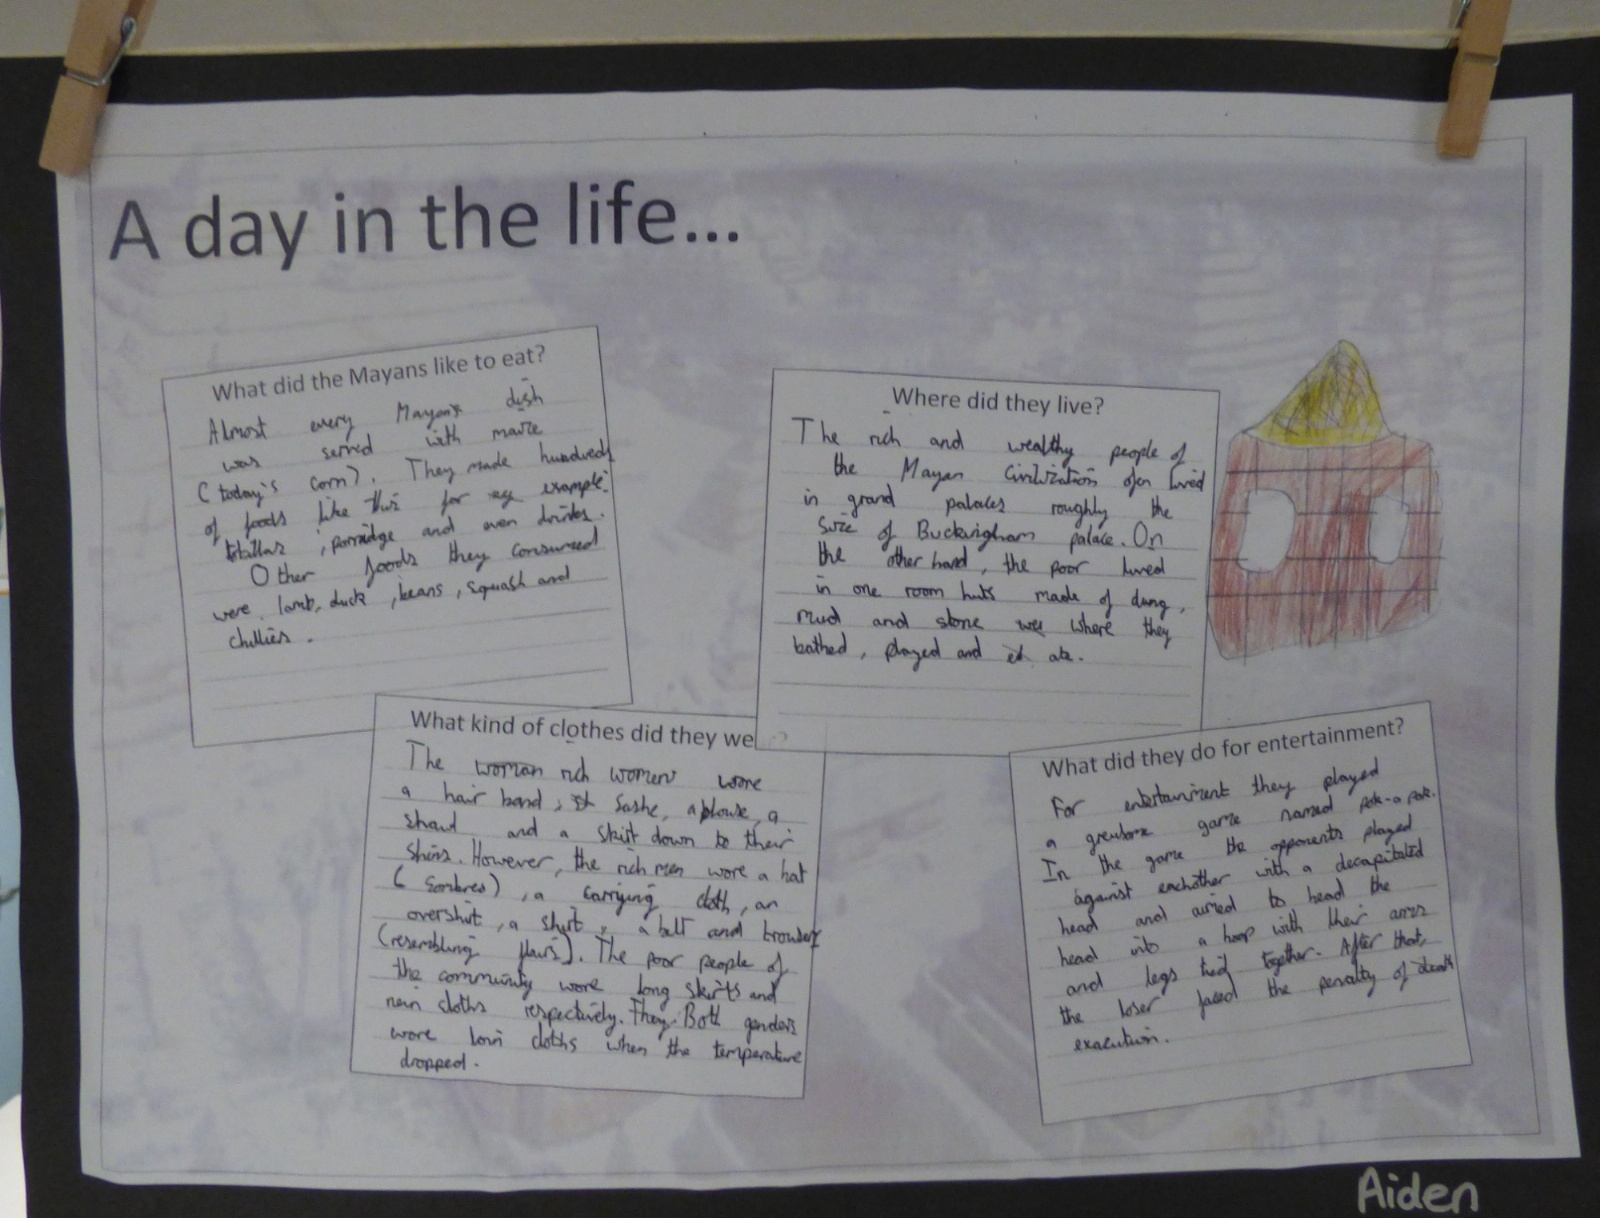 A day in the life...
What did the Mayans like to eat?
Almost every Mayans dish
was served with maize
(today's corn). They made hundreds
of foods like this for eg example:
, porridge and even drinks.
Other foods they consumed
were lamb, duck, beans, squash and
chillies.
Where did they live?
The rich and wealthy people of
the Mayan Civilization ofen lived
in grand palaces roughly the
size of Buckingham palace. On
the other hand, the poor lived
in one room huts made of dung,
mud and stone where they
bathed, played and ate.
What kind of clothes did they we
The woman rich women wore
a hair band, sashe, a blouse, a
shawl and a skirt down to their
shins. However, the rich men wore a hat
(Sombreo), a carrying cloth, an
overshirt, a shirt, a belt and trousers
(resembling flairs). The poor people of
the community wore long skirts and
cloths respectively. They. Both genders
wore loin cloths when the temperature
dropped.
What did they do for entertainment?
For entertainment they played
a grewsome game named pok-a pok.
In the game the opponents played
against eachother with a decapitated
head and aimed to head the
head into a hoop with their arms
and legs tied together. After that,
the loser faced the penalty of death
execution.
Aiden